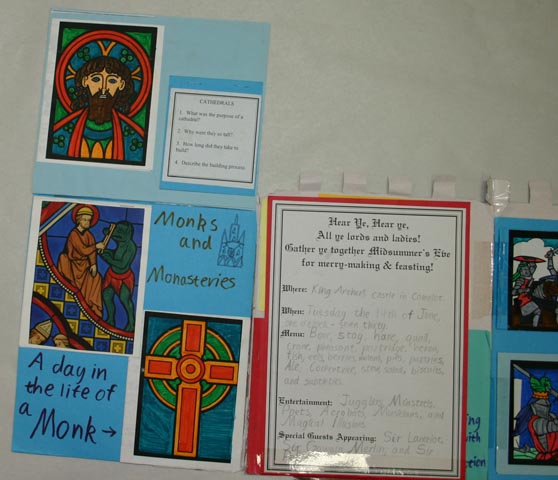 CATHEDRALS
1. What was the purpose of a
cathedral?
2. Why were they so tall?
3. How long did they take to
build?
4. Describe the building process
Monks
and
Monasteries
A day in
the life of
a Monk →
Hear Ye, Hear ye,
All ye lords and ladies!
Gather ye together Midsummer's Eve
for merry-making & feasting!
Where: King Arthurs castle in Camelot.
When: Tuesday the 14th of June,
Menu: Boar, stag, hare, quail,
crane, pheasant, partridge, heron,
fish, eels, berries, pies, pastries,
Ale, biscuits,
and subtleties.
Entertainment: Jugglers, Minstrels,
Poets, Acrobats, Musicians, and
Magical Illusions.
Special Guests Appearing: Sir Lancelot,
Merlin, and Sir